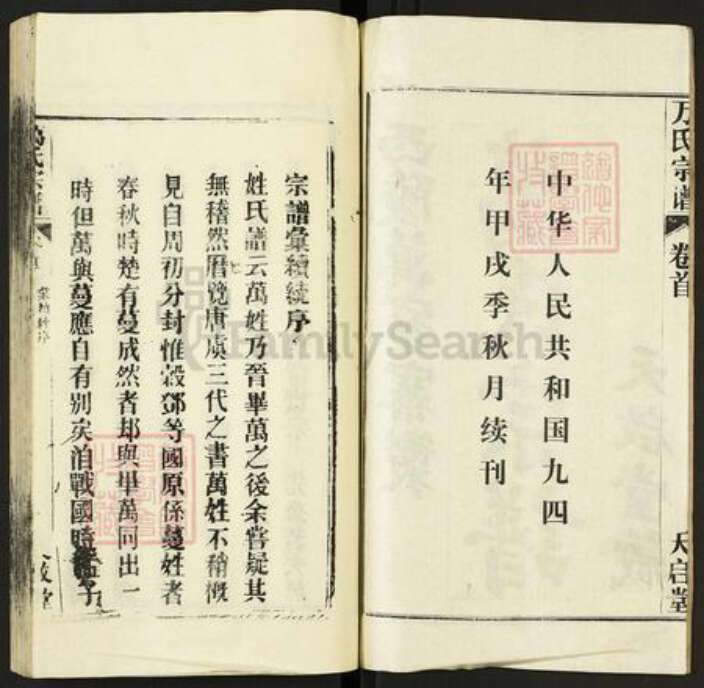 万氏宗谱
卷首
中华人民共和国九四
年甲戌季秋月续刊
宗譜彙續統序
姓氏譜云萬姓乃晉畢萬之後余嘗疑其
無稽然曆覽唐虞三代之書萬姓不稍概
見自周初分封惟穀鄧等國原係蔓姓者
春秋時楚有蔓成然者却與畢萬同出一
時但萬與蔓應自有別矣洎戰國時
FamilySearch